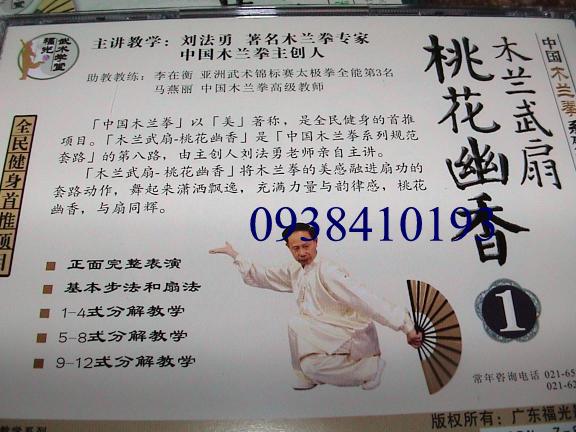 武术学堂
福光
主讲教学：刘法勇 著名木兰拳专家
中国木兰拳主创人
助教教练：李在衡 亚洲武术锦标赛太极拳全能第3名
马燕丽 中国木兰拳高级教师
「中国木兰拳」以「美」著称，是全民健身的首推
项目。「木兰武扇-桃花幽香」是「中国木兰拳系列规范
套路」的第八路，由主创人刘法勇老师亲自主讲。
「木兰武扇-桃花幽香」将木兰拳的美感融进扇功的
套路动作，舞起来潇洒飘逸，充满力量与韵律感，桃花
幽香，与扇同辉。
全民健身首推项目
正面完整表演
基本步法和扇法
1-4式分解教学
5-8式分解教学
9-12式分解教学
0938410193
木兰武扇
桃花幽香
1
中国木兰拳系
常年咨询电话 021-65
021-62
版权所有：广东福光
教学系列